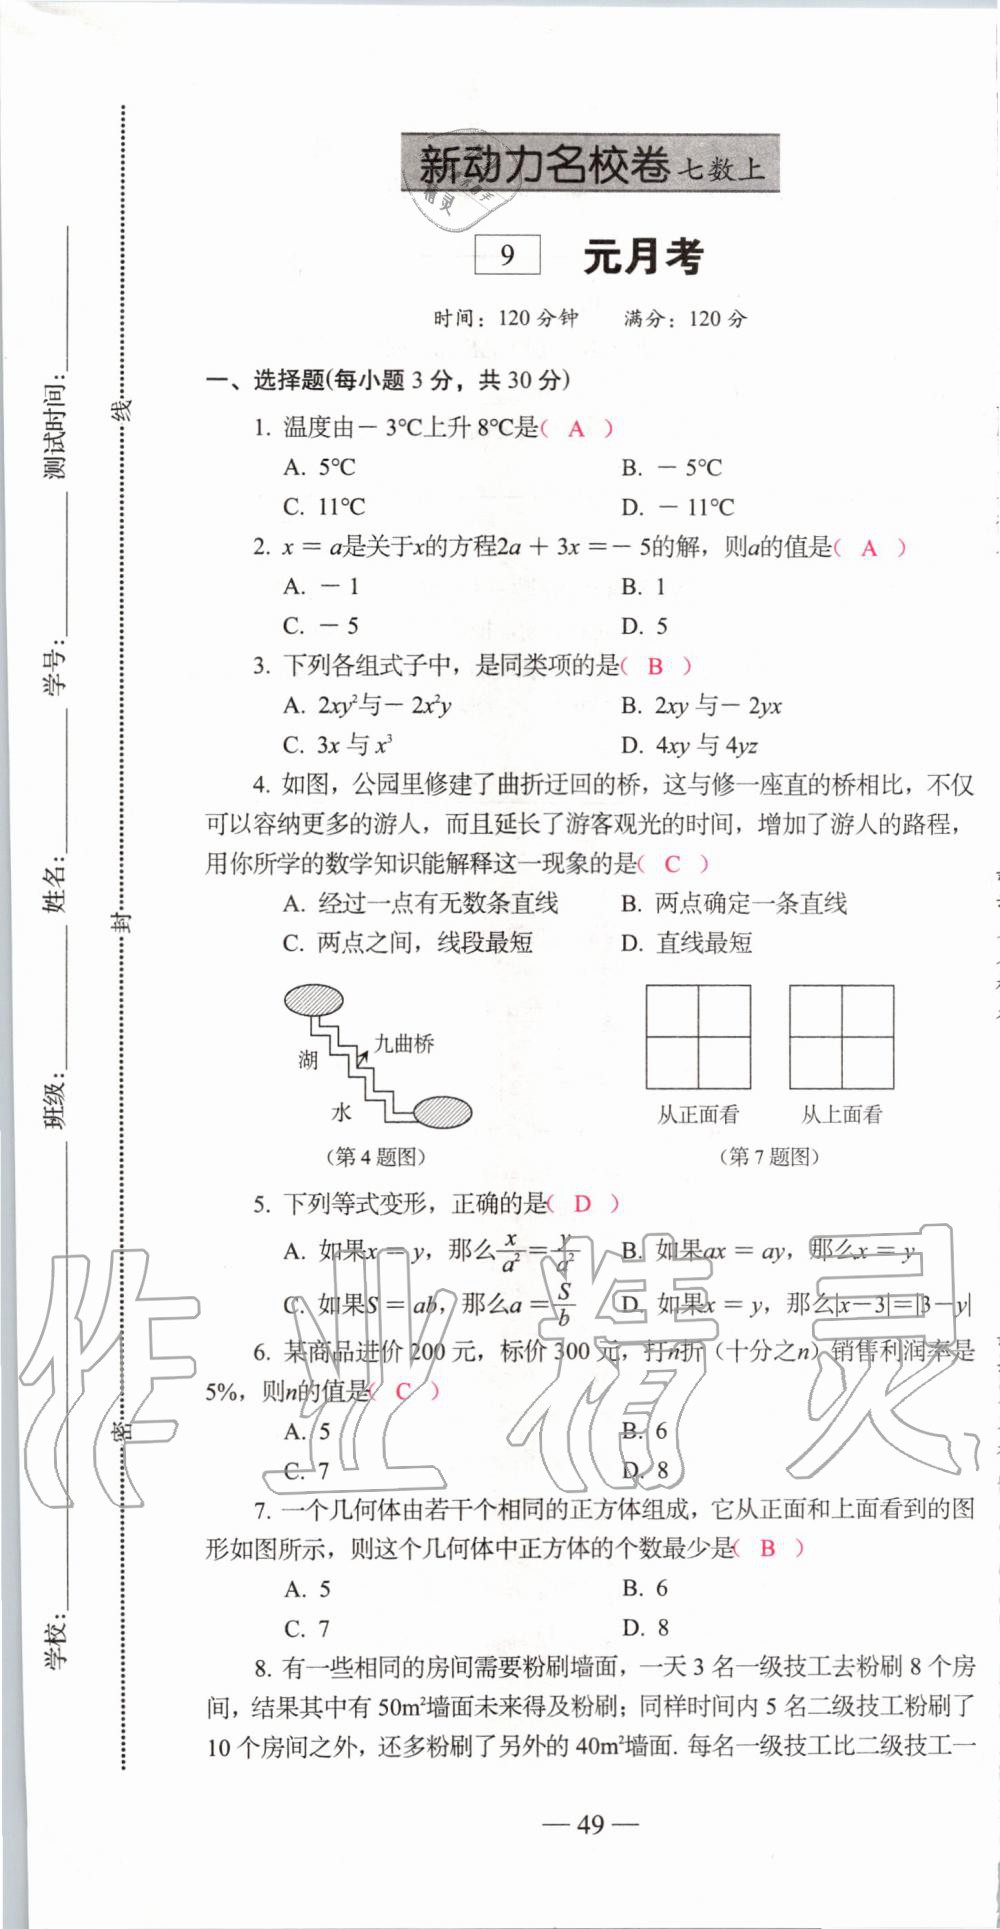 新动力名校卷 七数上
9 元月考
时间：120分钟 满分：120分
一、选择题(每小题3分，共30分)
1. 温度由－3℃上升8℃是( A )
A. 5℃ B. －5℃
C. 11℃ D. －11℃
2. x = a是关于x的方程2a + 3x =－5的解，则a的值是( A )
A. －1 B. 1
C. －5 D. 5
3. 下列各组式子中，是同类项的是( B )
A. 2xy²与－2x²y B. 2xy 与－2yx
C. 3x 与 x³ D. 4xy 与 4yz
4. 如图，公园里修建了曲折迂回的桥，这与修一座直的桥相比，不仅
可以容纳更多的游人，而且延长了游客观光的时间，增加了游人的路程，
用你所学的数学知识能解释这一现象的是( C )
A. 经过一点有无数条直线 B. 两点确定一条直线
C. 两点之间，线段最短 D. 直线最短
九曲桥
湖
水
从正面看 从上面看
(第4题图) (第7题图)
5. 下列等式变形，正确的是( D )
A. 如果x = y，那么x/a²=y/a² B. 如果ax = ay，那么x = y
C. 如果S = ab，那么a = S/b D. 如果x = y，那么|x－3|=|3－y|
6. 某商品进价200元，标价300元，打n折（十分之n）销售利润率是
5%，则n的值是( C )
A. 5 B. 6
C. 7 D. 8
7. 一个几何体由若干个相同的正方体组成，它从正面和上面看到的图
形如图所示，则这个几何体中正方体的个数最少是( B )
A. 5 B. 6
C. 7 D. 8
8. 有一些相同的房间需要粉刷墙面，一天3名一级技工去粉刷8个房
间，结果其中有50m²墙面未来得及粉刷；同样时间内5名二级技工粉刷了
10个房间之外，还多粉刷了另外的40m²墙面. 每名一级技工比二级技工一
— 49 —
学校： 班级： 姓名： 学号： 测试时间：
密 封 线
作业精灵